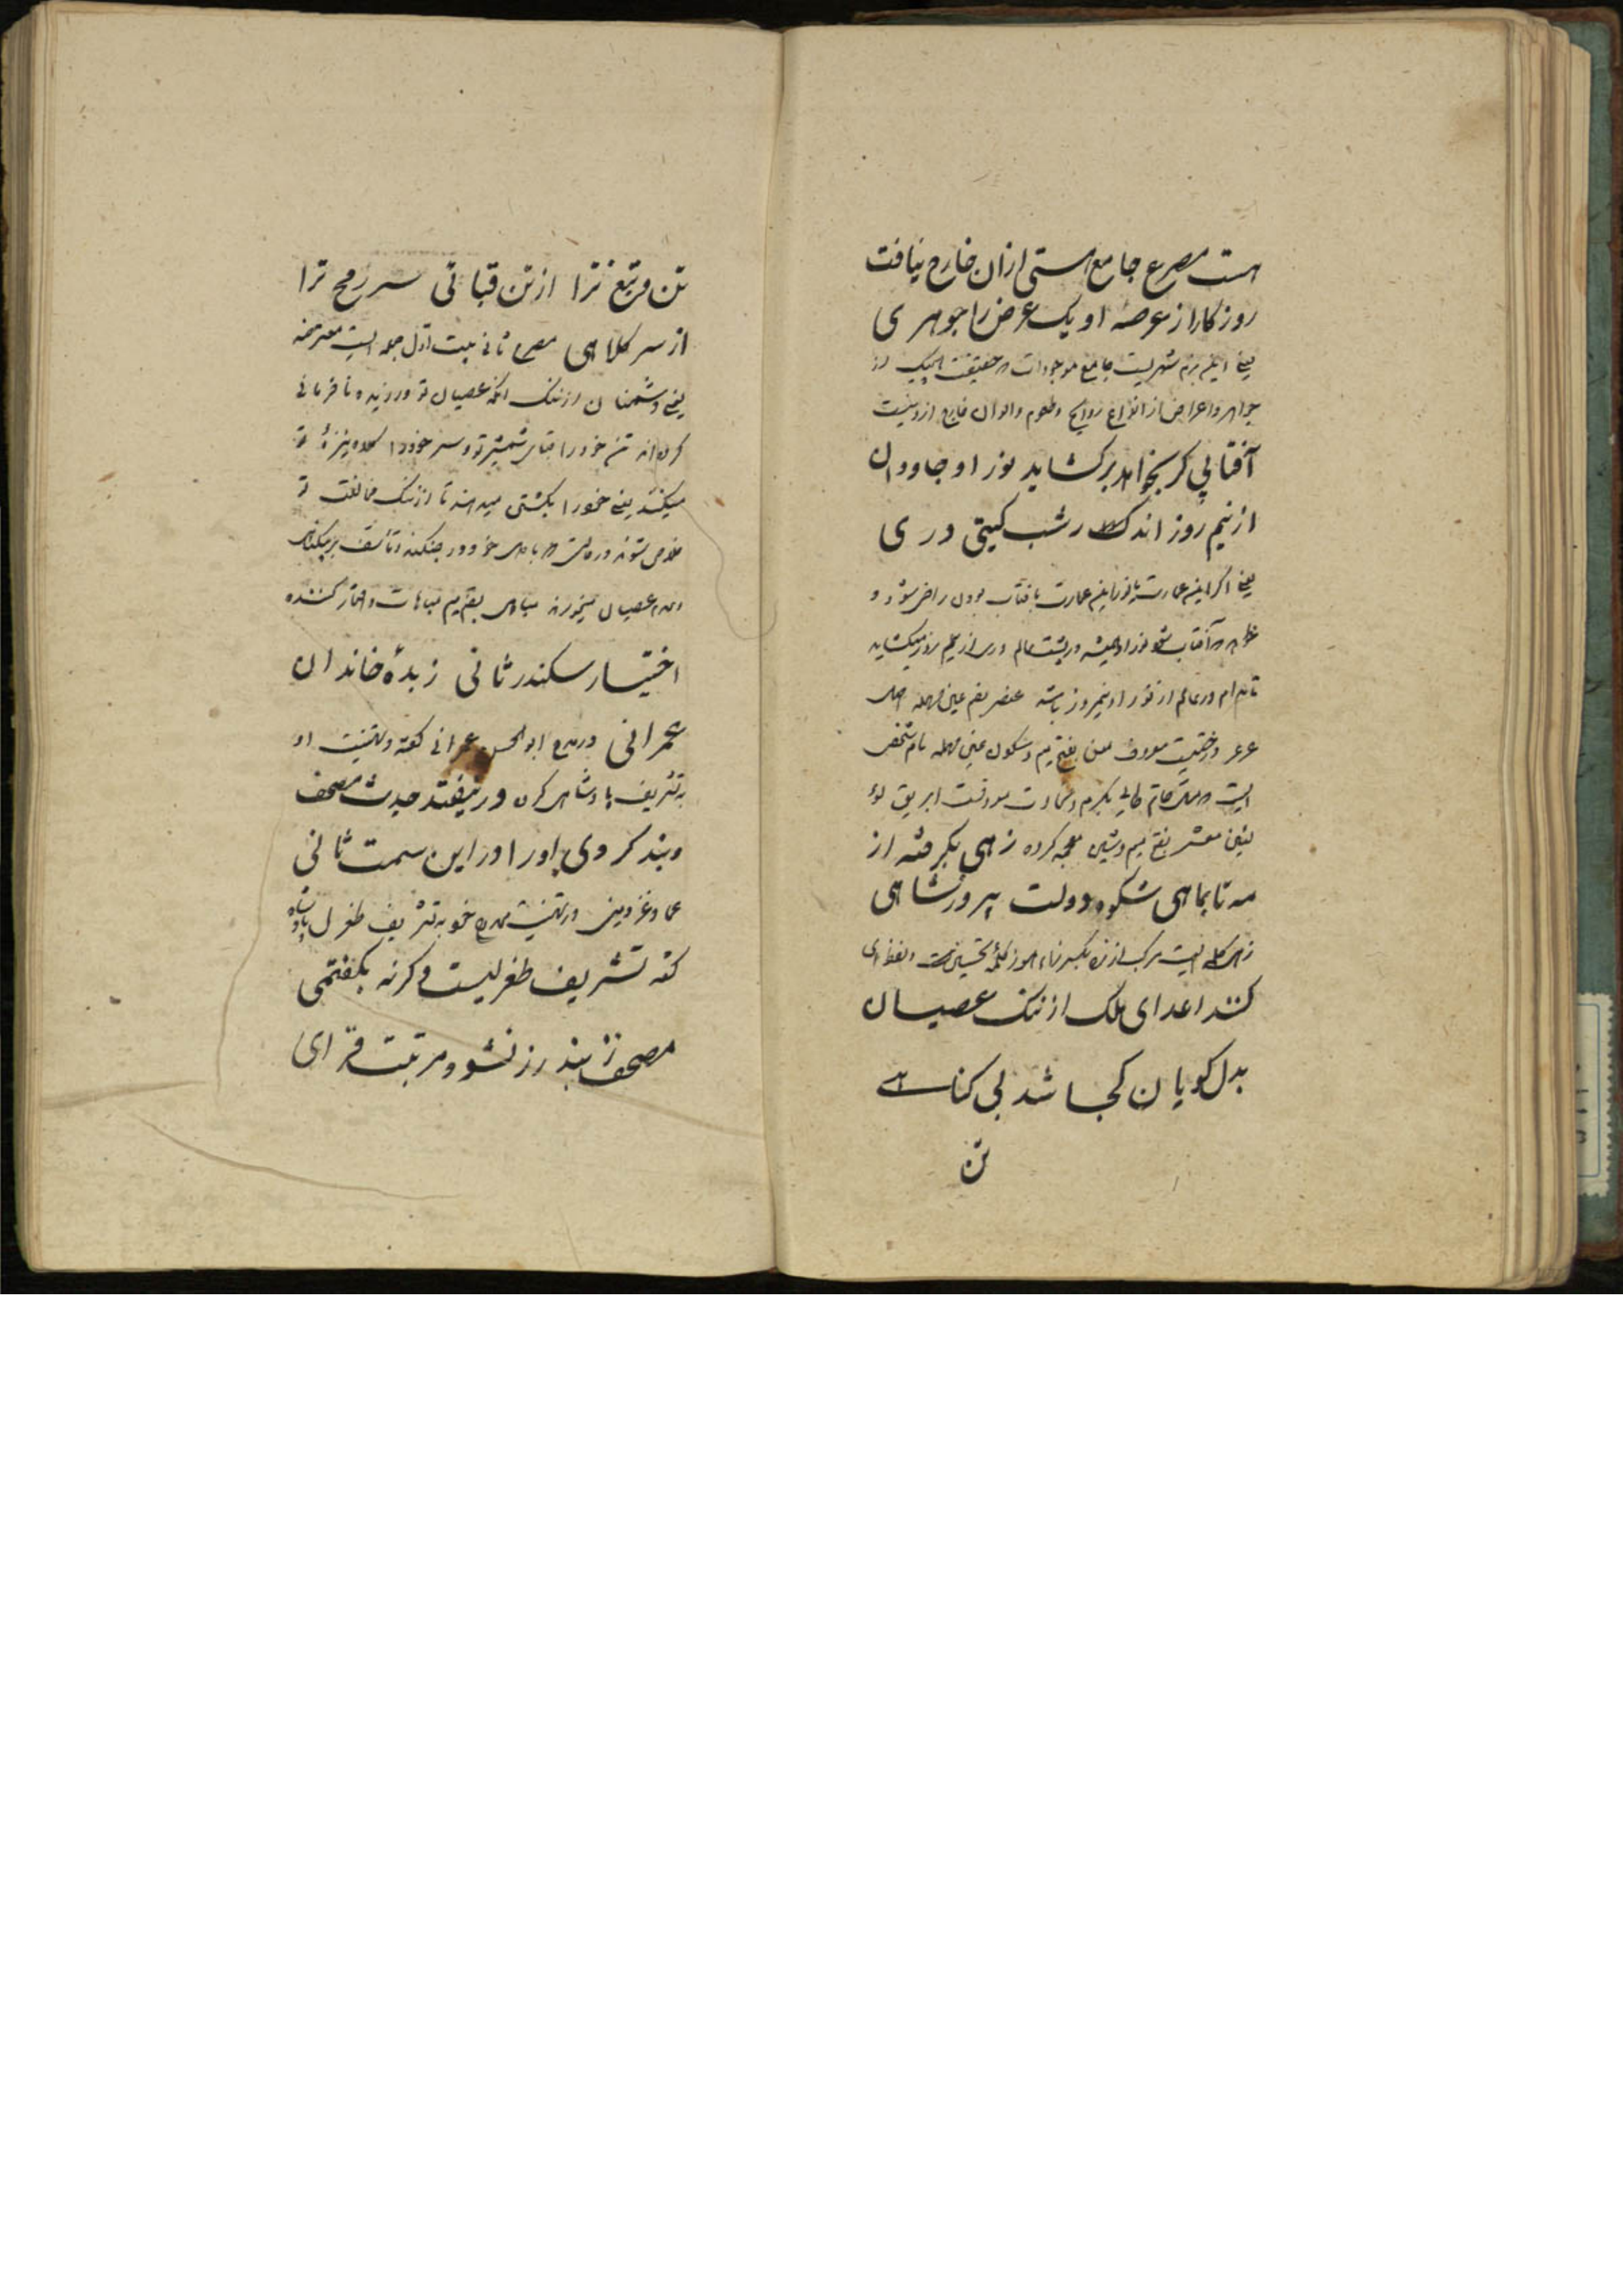 هست مصرع جامع هستی ازان خارج نیافت
روزکار از عرصه او یک عرض را جوهری
یعنی این بزم شهریست جامع موجودات در حقیقت هیچیک از
جواهر و اعراض از انواع روایح و طعوم و الوان خارج ازو نیست
آفتابی کر بخواهد برکشاید نور او جاودان
از نیم روز اندر شب کیتی دری
یعنی اکر این عمارت بافتاب بودن راضی شود و
آفتاب شود نور او همیشه در شب عالم دری از نیم روز میکشاید
تا مدام در عالم از نور او نیمروز باشد عنصر بضم عین مهمله اصل
عرعر درختیست معروف معن بفتح میم و سکون عین مهمله نام شخصی
است حاتم طائی بکرم و سخاوت معروفست ابریق لوله
معشر بفتح میم و شین معجمه کروه زهی بکرفته از
مه تا بماهی شکوه دولت پیروزشاهی
زهی کلمه ایست مرکب از زه بکسر زاء هوز کلمه تحسین است و لفظ ای
کنند اعدای ملک از ننک عصیان
بدل کویان کجا شد بی کناهی
تن
تن و تیغ ترا از تن قبائی سر رمح ترا
از سر کلاهی مصرع ثانی بیت اول جمله ایست معترضه
یعنی دشمنان از ننک آنکه عصیان تو ورزیده و نافرمانی
کرده اند تن خود را قبای شمشیر تو و سر خود را کلاه نیزه تو
میکنند یعنی خود را بکشتن میدهند تا از ننک مخالفت تو
خلاص شوند و در دل خود
و عدم عصیان میخورند مباهی بضم میم مباهات و افتخار کننده
اختیار سکندر ثانی زبده خاندان
عمرانی در مدح ابوالحسن عمرانی کفته و تهنیت او
به تشریف پادشاهی کرده ور نیفتد حدیث مصحف
و بند کردی باور این سمت ثانی
عماد غزنوی در تهنیت ممدوح خود به تشریف طغرل پادشاه
کفته تشریف طغرلیست وکرنه بکفتمی
مصحف ز بند زر نشود مرتبت فزای